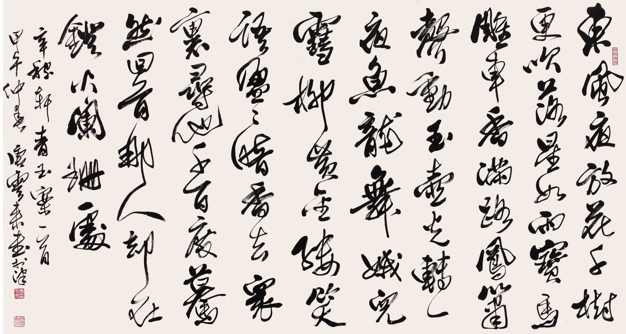 東風夜放花千樹
更吹落星如雨寶馬
雕車香滿路鳳簫
聲動玉壺光轉一
夜魚龍舞蛾兒
雪柳黃金縷笑
語盈〻暗香去衆
裏尋他千百度驀
然回首那人却在
鐙火闌珊處
辛稼軒青玉案一首
甲午仲春唐雲來書